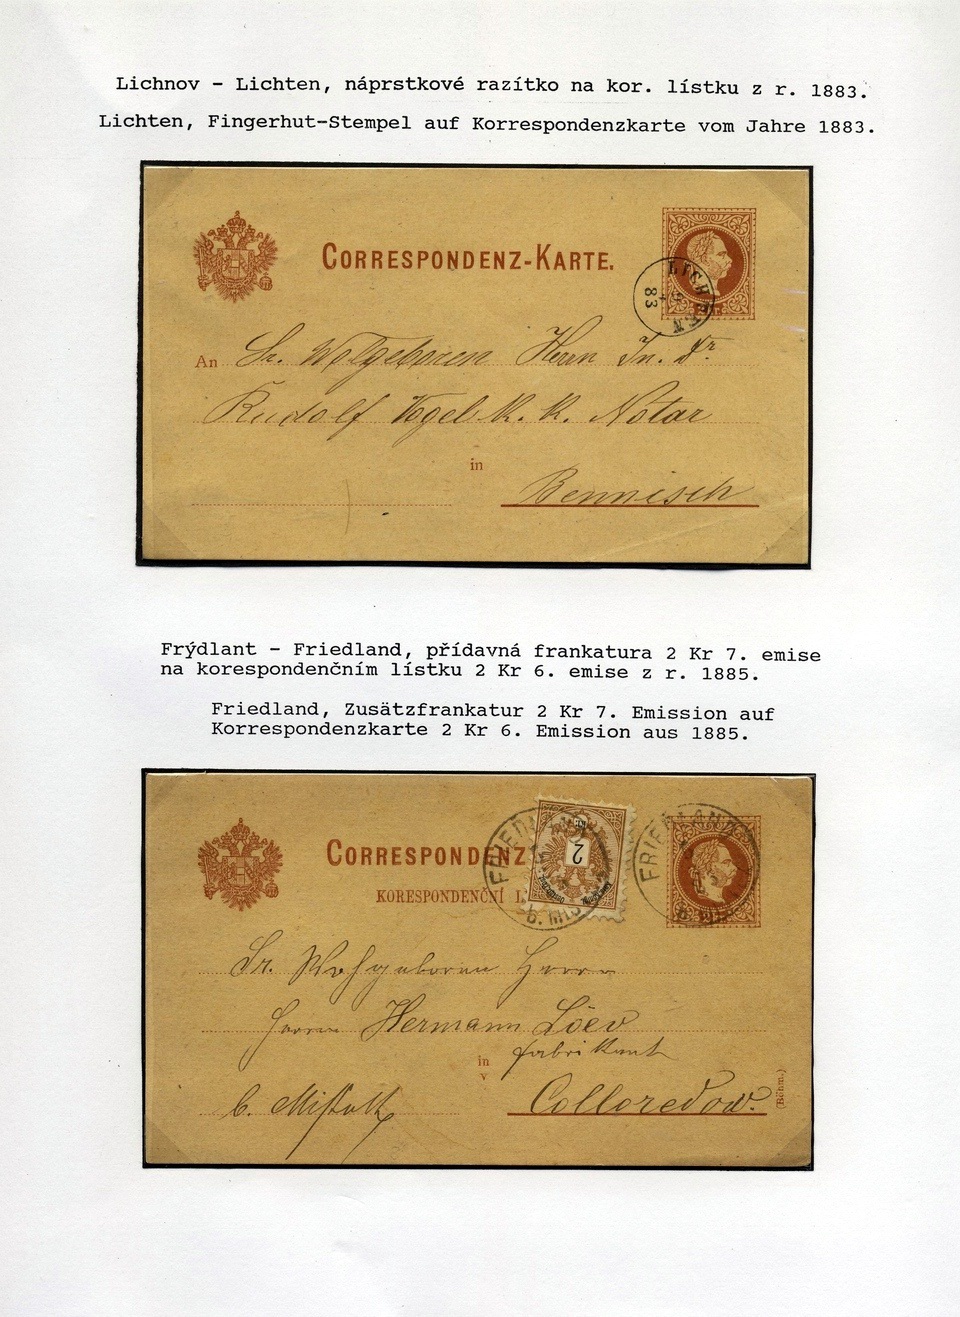 Lichnov - Lichten, náprstkové razítko na kor. lístku z r. 1883.
Lichten, Fingerhut-Stempel auf Korrespondenzkarte vom Jahre 1883.
CORRESPONDENZ-KARTE.
LICHTEN
83
An Sr. Wolgeboren Herrn Dr.
Rudolf Vogel k. k. Notar
in
Bennisch
Frýdlant - Friedland, přídavná frankatura 2 Kr 7. emise
na korespondenčním lístku 2 Kr 6. emise z r. 1885.
Friedland, Zusätzfrankatur 2 Kr 7. Emission auf
Korrespondenzkarte 2 Kr 6. Emission aus 1885.
CORRESPONDENZ
KORESPONDENČNÍ L
FRIEDLAND
b. MIS
2
FRIEDLAND
b. MIS
Sr. Wohgeboren Herrn
Herrn Hermann Löev
fabrikant
in
v
b. Mistek Colloredow.
(Böhm.)